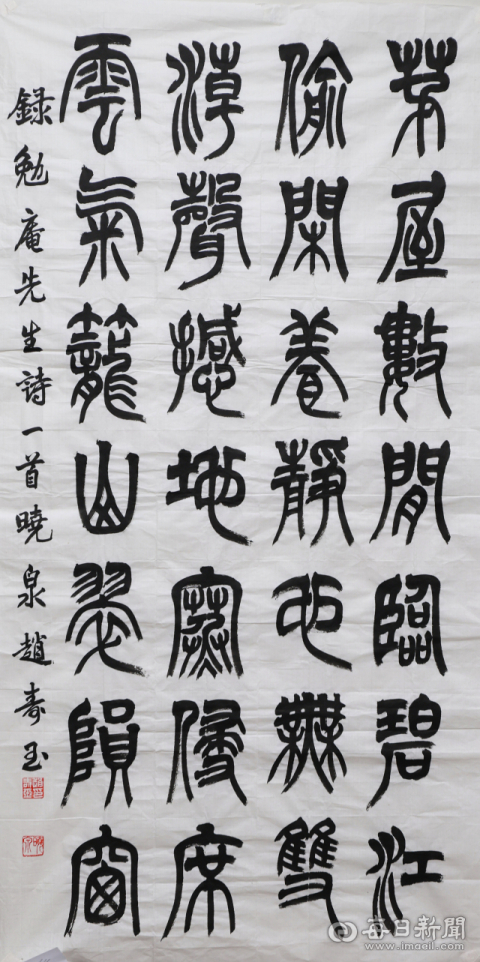 茅屋數閒臨碧江
偸閑養靜也無雙
濤聲撼地寒侵席
雲氣籠山翠隕窗
録勉庵先生詩一首曉泉趙壽玉
每日新聞
www.imaeil.com